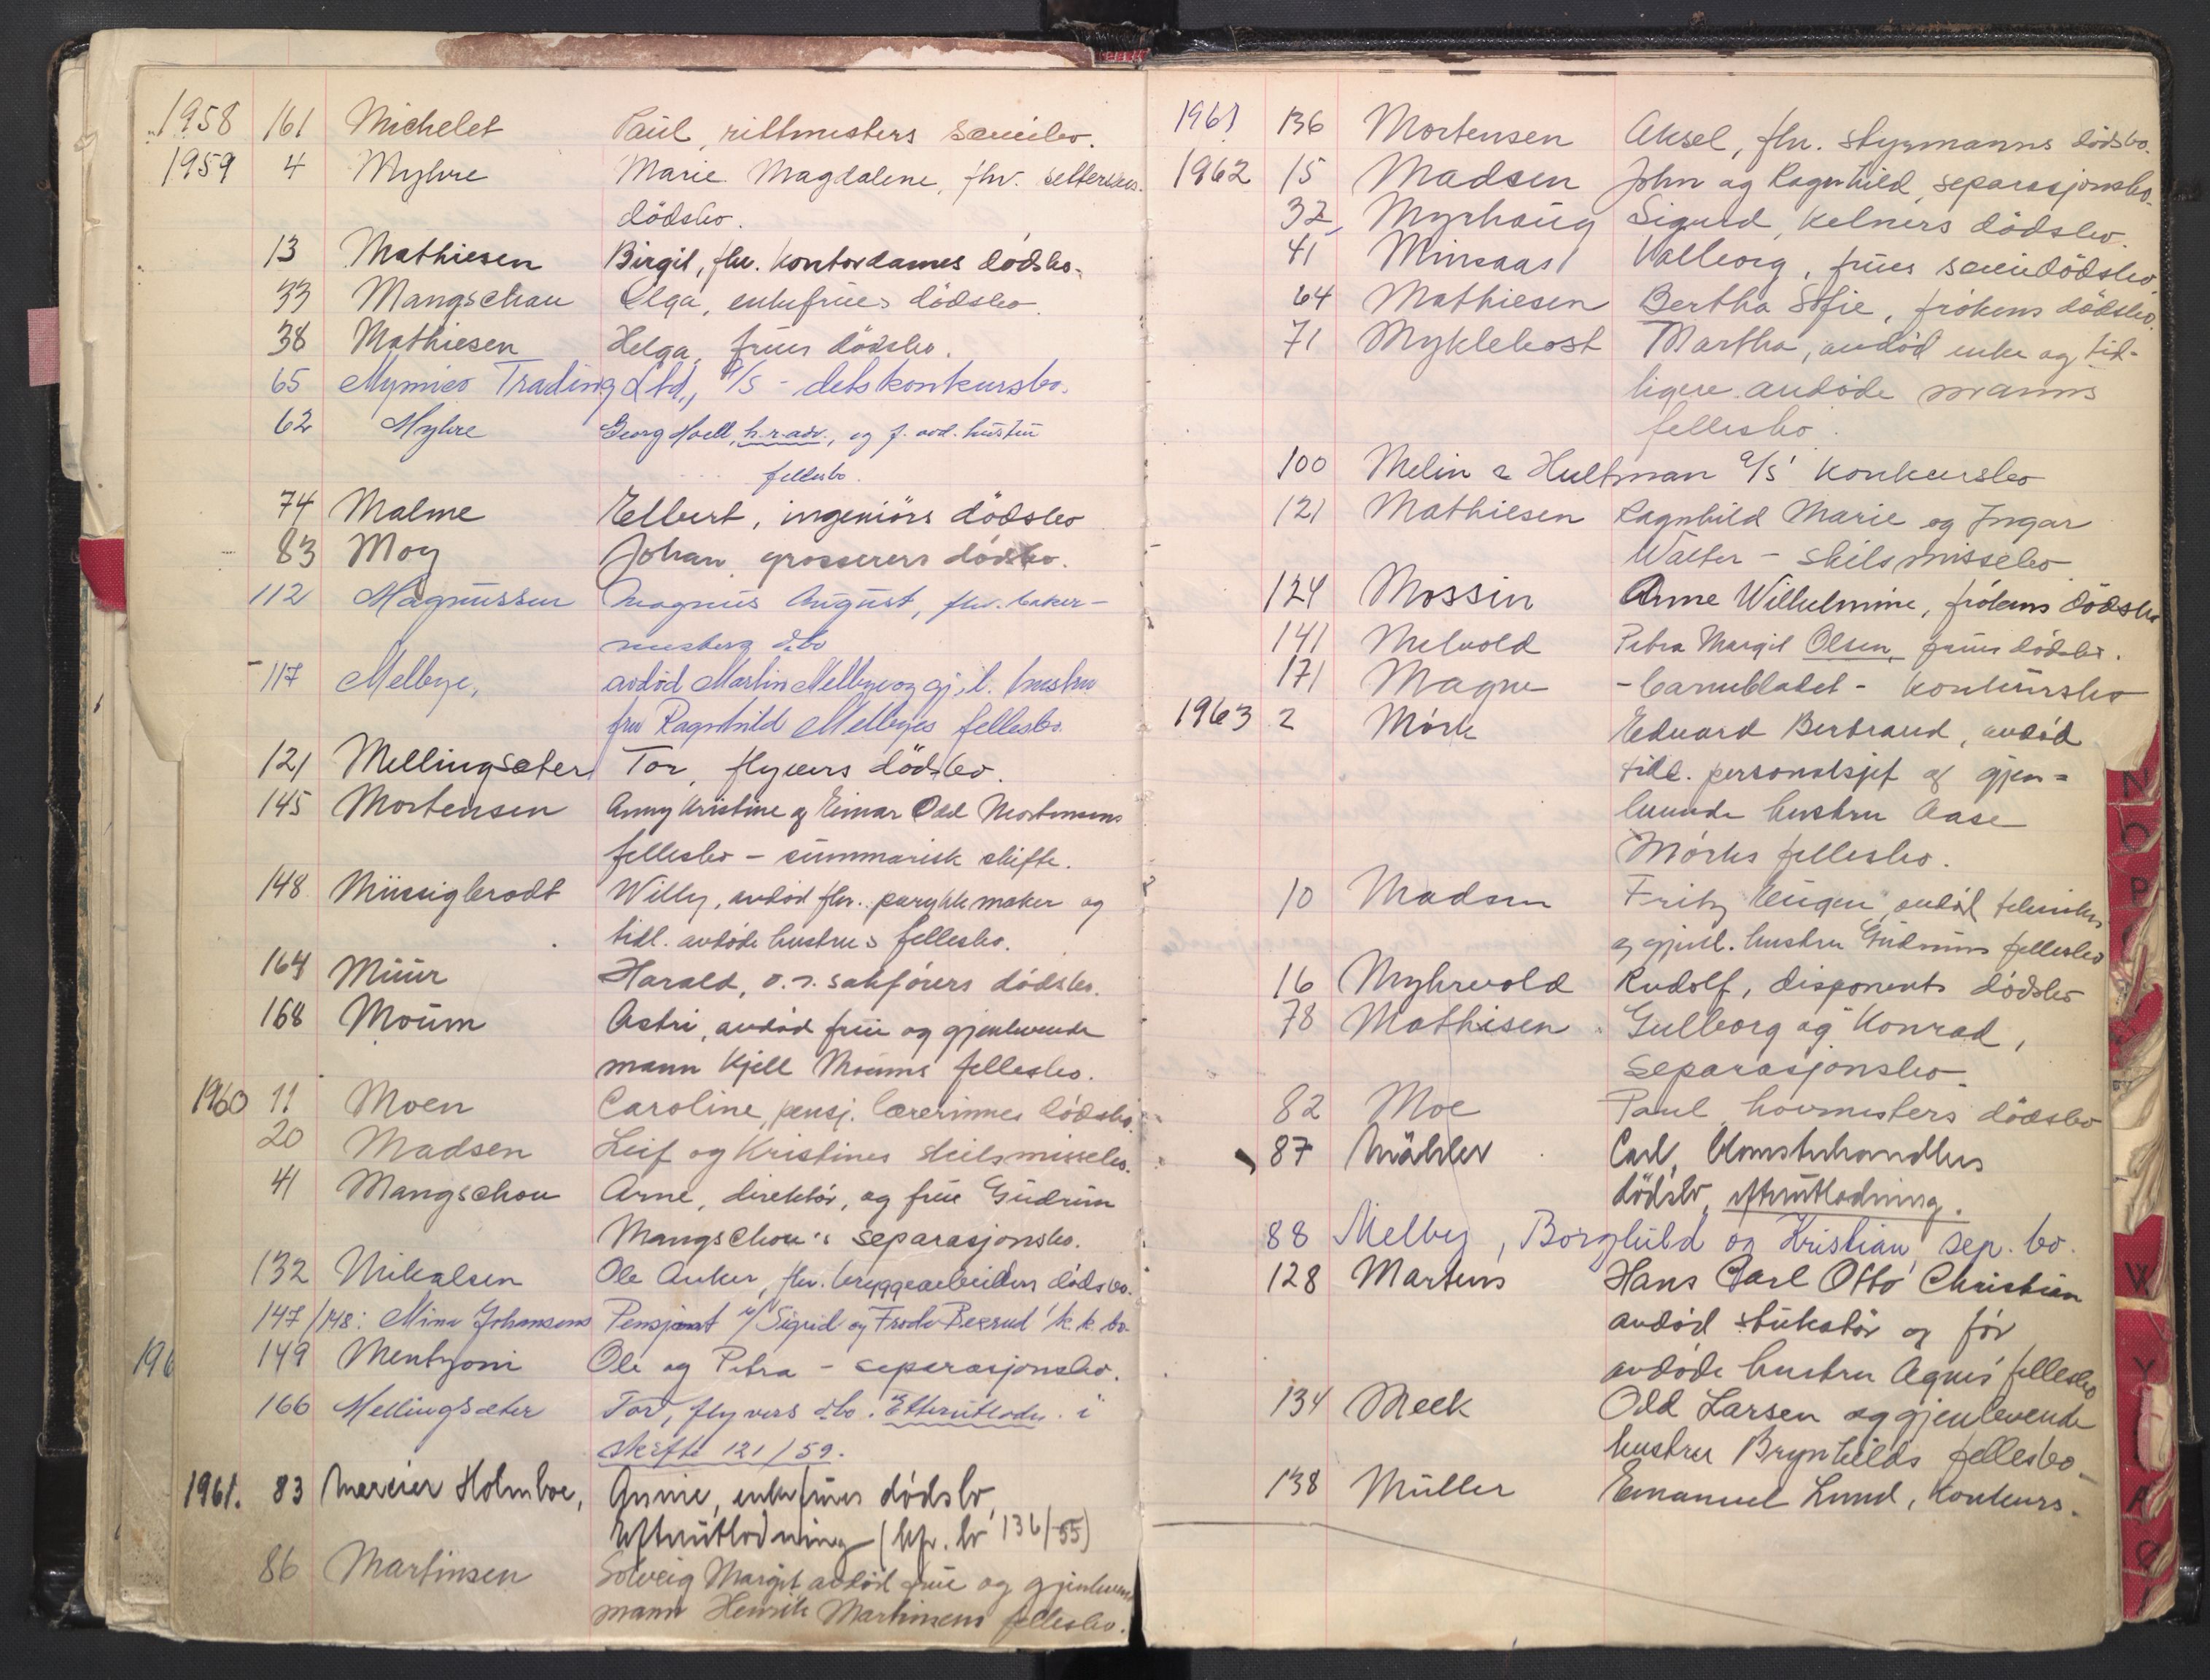 1958 161 Michelet Paul, rittmesters særeiebo.
1959 4 Myhre Marie Magdalene, fhv.
dödsbo.
13 Mathiesen Birgit, fhv. kontordames dödsbo.
33 Mangschau Olga, enkefrues dödsbo.
38 Mathiesen Helga, frues dödsbo.
65 Trading Ltd., A/S - dets konkursbo.
62 Myhre Georg Hvell, h.r.adv., og f. avd. hustru
fellesbo.
74 Malme Elbert, ingeniörs dödsbo
83 Moy Johan, grosserers dödsbo.
112 Magnussen Magnus August, fhv. baker-
mesters d.bo
117 Melbye, avdöd Martin Melbye og gj.l. hustru
fru Ragnhild Melbyes fellesbo.
121 Mellingsæter Tor, flyvers dödsbo.
145 Mortensen Anny Kristine og Einar Odd Mortensens
fellesbo - summarisk skifte.
148 Müssigbrodt Willy, avdöd fhv. parykkmaker og
tidl. avdöde hustrus fellesbo.
164 Muur Harald, o.r. sakförers dödsbo.
168 Moum Astri, avdöd frue og gjenlevende
mann Kjell Moums fellesbo.
1960 11 Moen Caroline, pensj. lærerinnes dödsbo.
20 Madsen Leif og Kristines skilsmissebo.
41 Mangschou Arne, direktör, og frue Gudrun
Mangschou's separasjonsbo.
132 Mikalsen Ole Anker, fhv. bryggearbeiders dödsbo.
147/148: Mina Johansens Pensjonat v/ Sigrid og Frode Bessrud k.k. bo.
196 149 Mentzoni Ole og Petra - separasjonsbo.
166 Mellingsæter Tor, flyvers d.bo. Etterutlodn. i
skifte 121/59.
1961. 83 Mercier Holmboe, Annie, enkefrues dödsbo,
Efterutlodning (kfr. bo 136/55)
86 Martinsen Solveig Margit avdöd frue og gjenlevende
mann Henrik Martinsens fellesbo.
1961 136 Mortensen Aksel, fhv. styrmanns dödsbo.
1962 15 Madsen John og Ragnhild, separasjonsbo.
32, Myrhaug Sigurd, kelners dödsbo.
41 Minsaas Valborg, frues særeiedödsbo
64 Mathiesen Bertha Sofie, frökens dödsbo.
71 Myklebost Martha, avdöd enke og tid-
ligere avdöde manns
fellesbo.
100 Melin & Hultman A/S' konkursbo
121 Mathiesen Ragnhild Marie og Ingar
Walter - skilsmissebo
124 Mossin Anne Wilhelmine, frökens dödsbo
141 Melvold Petra Margit Olsen, frues dödsbo.
171 Magne - barnebladet - konkursbo
1963 2 Mörk Edvard Bertrand, avdöd
tidl. personalsjef og gjen-
levende hustru Aase
Mörks fellesbo.
10 Madsen Fritz Eugen, avdöd tekniker
og gjenl. hustru Gudruns fellesbo
16 Myhrvold Rudolf, disponents dödsbo
78 Mathisen Gulborg og Konrad,
separasjonsbo.
82 Moe Paul, hovmesters dödsbo
87 Mähler Carl, blomsterhandlers
dödsbo, efterutlodning.
88 Melby, Borghild og Kristian, sep. bo.
128 Martens Hans Carl Otto Christian
avdöd stukatör og för
avdöde hustru Agnes' fellesbo
134 Meek Odd Larsen og gjenlevende
hustru Brynhilds fellesbo
138 Müller Emanuel Lund, konkurs.
N
O
P
W
Y
Æ
Ø